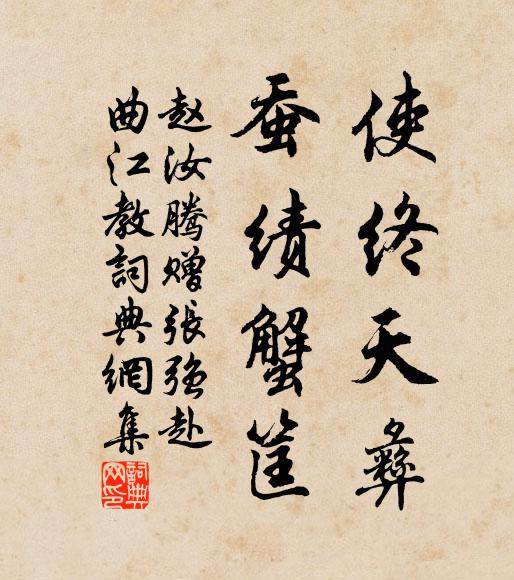 使终天彝
蚕绩蟹筐
赵汝腾赠张强赴
曲江教詞典網集
詞典网印